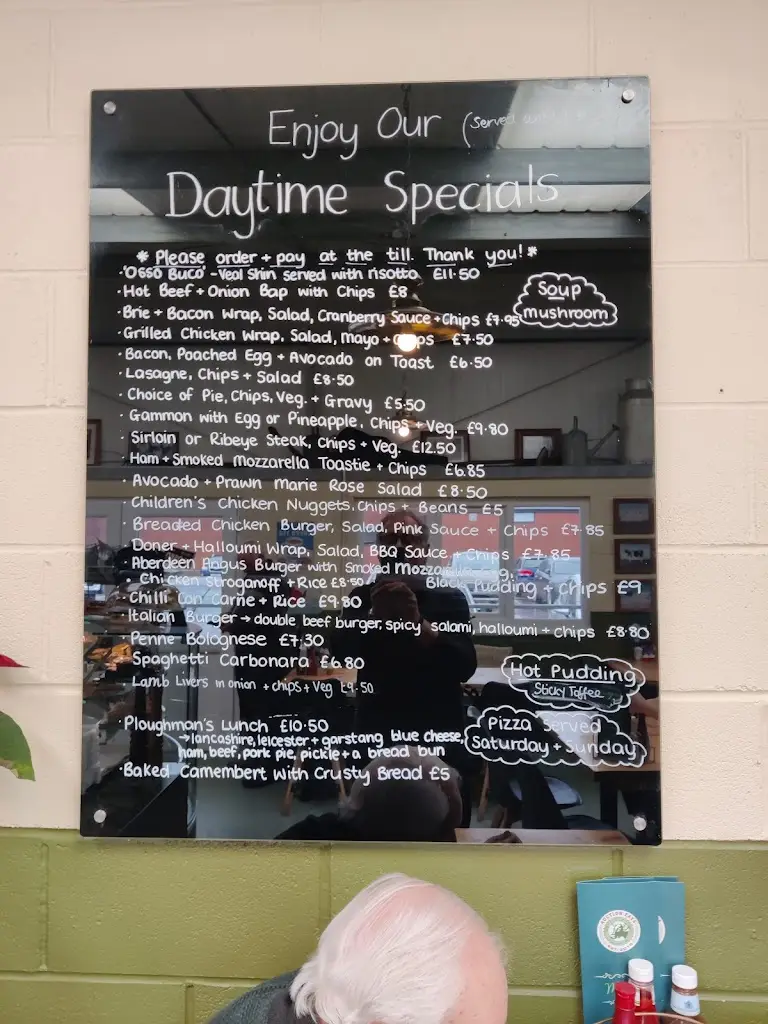 Enjoy Our (Served
Daytime Specials
* Please order + pay at the till. Thank you! *
·'Osso Buco' - Veal Shin served with risotto £11.50
·Hot Beef + Onion Bap with Chips £8
Soup
mushroom
·Brie + Bacon Wrap, Salad, Cranberry Sauce + Chips £7.95
·Grilled Chicken Wrap, Salad, Mayo + Chips £7.50
·Bacon, Poached Egg + Avocado on Toast £6.50
·Lasagne, Chips + Salad £8.50
·Choice of Pie, Chips, Veg. + Gravy £5.50
·Gammon with Egg or Pineapple, Chips + Veg. £9.80
·Sirloin or Ribeye Steak, Chips + Veg. £12.50
·Ham + Smoked Mozzarella Toastie + Chips £6.85
·Avocado + Prawn Marie Rose Salad £8.50
·Children's Chicken Nuggets, Chips + Beans £5
·Breaded Chicken Burger, Salad, Pink Sauce + Chips £7.85
·Doner + Halloumi Wrap, Salad, BBQ Sauce + Chips £7.85
·Aberdeen Angus Burger with Smoked
Black Pudding + Chips £9
Chicken Stroganoff + Rice £8.50
·Chilli Con Carne + Rice £9.80
·Italian Burger → double beef burger, spicy salami, halloumi + chips £8.80
·Penne Bolognese £7.30
·Spaghetti Carbonara £6.80
·Lamb Livers in onion + chips + Veg £9.50
Hot Pudding
Sticky Toffee
·Ploughman's Lunch £10.50
→ lancashire, leicester + garstang blue cheese,
ham, beef, pork pie, pickle + a bread bun
Pizza Served
Saturday + Sunday
·Baked Camembert with Crusty Bread £5